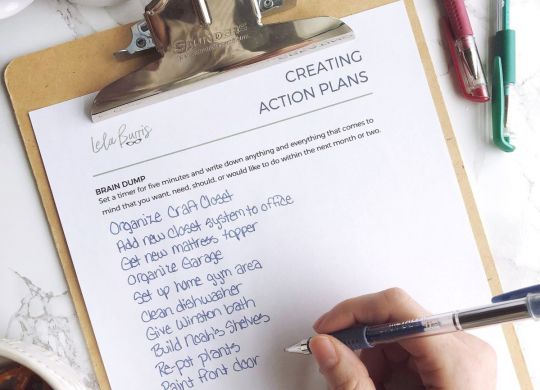 SAUNDERS
CREATING
ACTION PLANS
Lela Burris
BRAIN DUMP
Set a timer for five minutes and write down anything and everything that comes to
mind that you want, need, should, or would like to do within the next month or two.
Organize Craft Closet
Add new closet system to office
Get new mattress topper
Organize Garage
Set up home gym area
Clean dishwasher
Give Winston bath
Build Neah's shelves
Re-pot plants
Paint front door